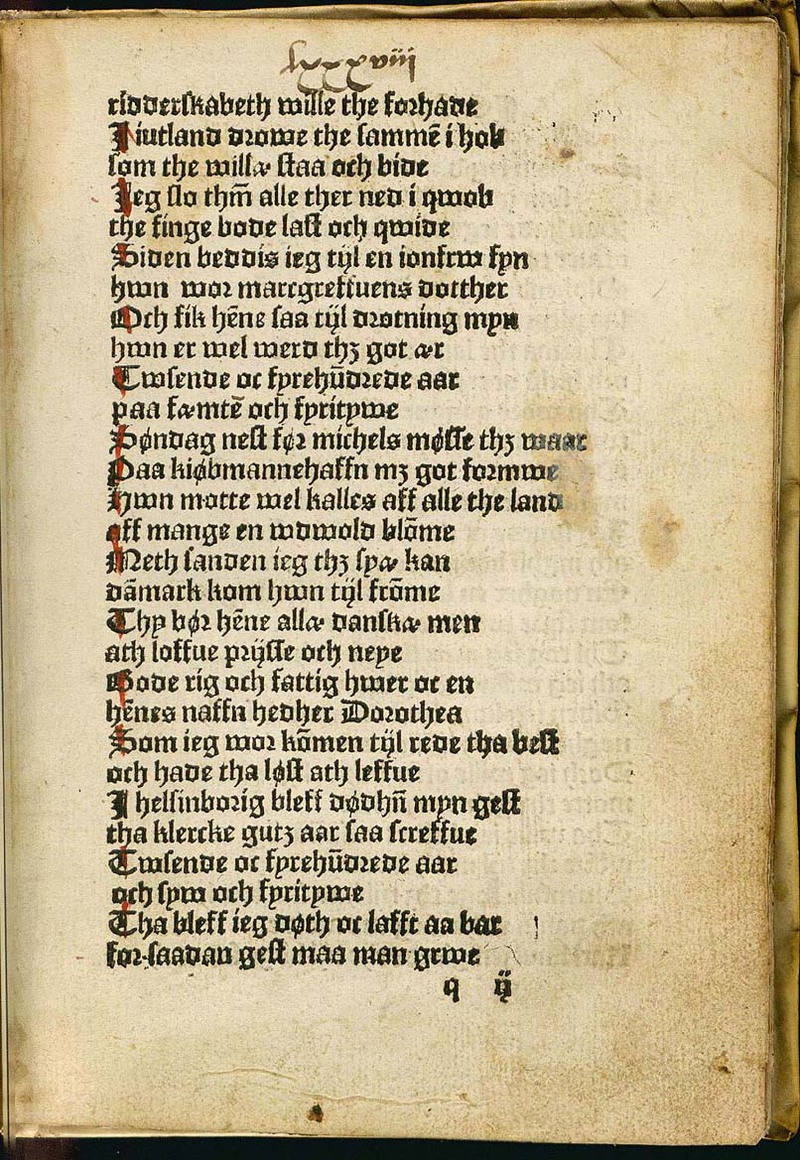 lxxxviij
ridderskabeth wille the forhade
J iutland drowe the sammē i hob
som the willæ staa och bide
Jeg slo thm̄ alle ther ned i qwob
the finge bode last och qwide
Siden beddis ieg tijl en ionfrw fyn
hwn wor marcgreffuens dotther
Och fik hēne saa tijl drotning myn
hwn er wel werd thꝫ got ær
Twsende oc fyrehūdrede aar
paa fæmtē och fyritywe
Søndag nest før michels møsse thꝫ waar
Paa kiøbmannehaffn mꝫ got formwe
Hwn motte wel kalles aff alle the land
aff mange en wdwold blōme
Meth sanden ieg thꝫ syæ kan
dāmark kom hwn tijl frōme
Thy bør hēne allæ danskæ men
ath loffue prijsse och neye
Bode rig och fattig hwer oc en
hēnes naffn hedher Dorothea
Som ieg wor kōmen tijl rede tha best
och hade tha løst ath leffue
J helsinborig bleff dødhn̄ myn gest
tha klercke gutꝫ aar saa screffue
Twsende oc fyrehūdrede aar
och syw och fyritywe
Tha bleff ieg døth oc lafft aa bar
for saadan gest maa man grwe
q ij